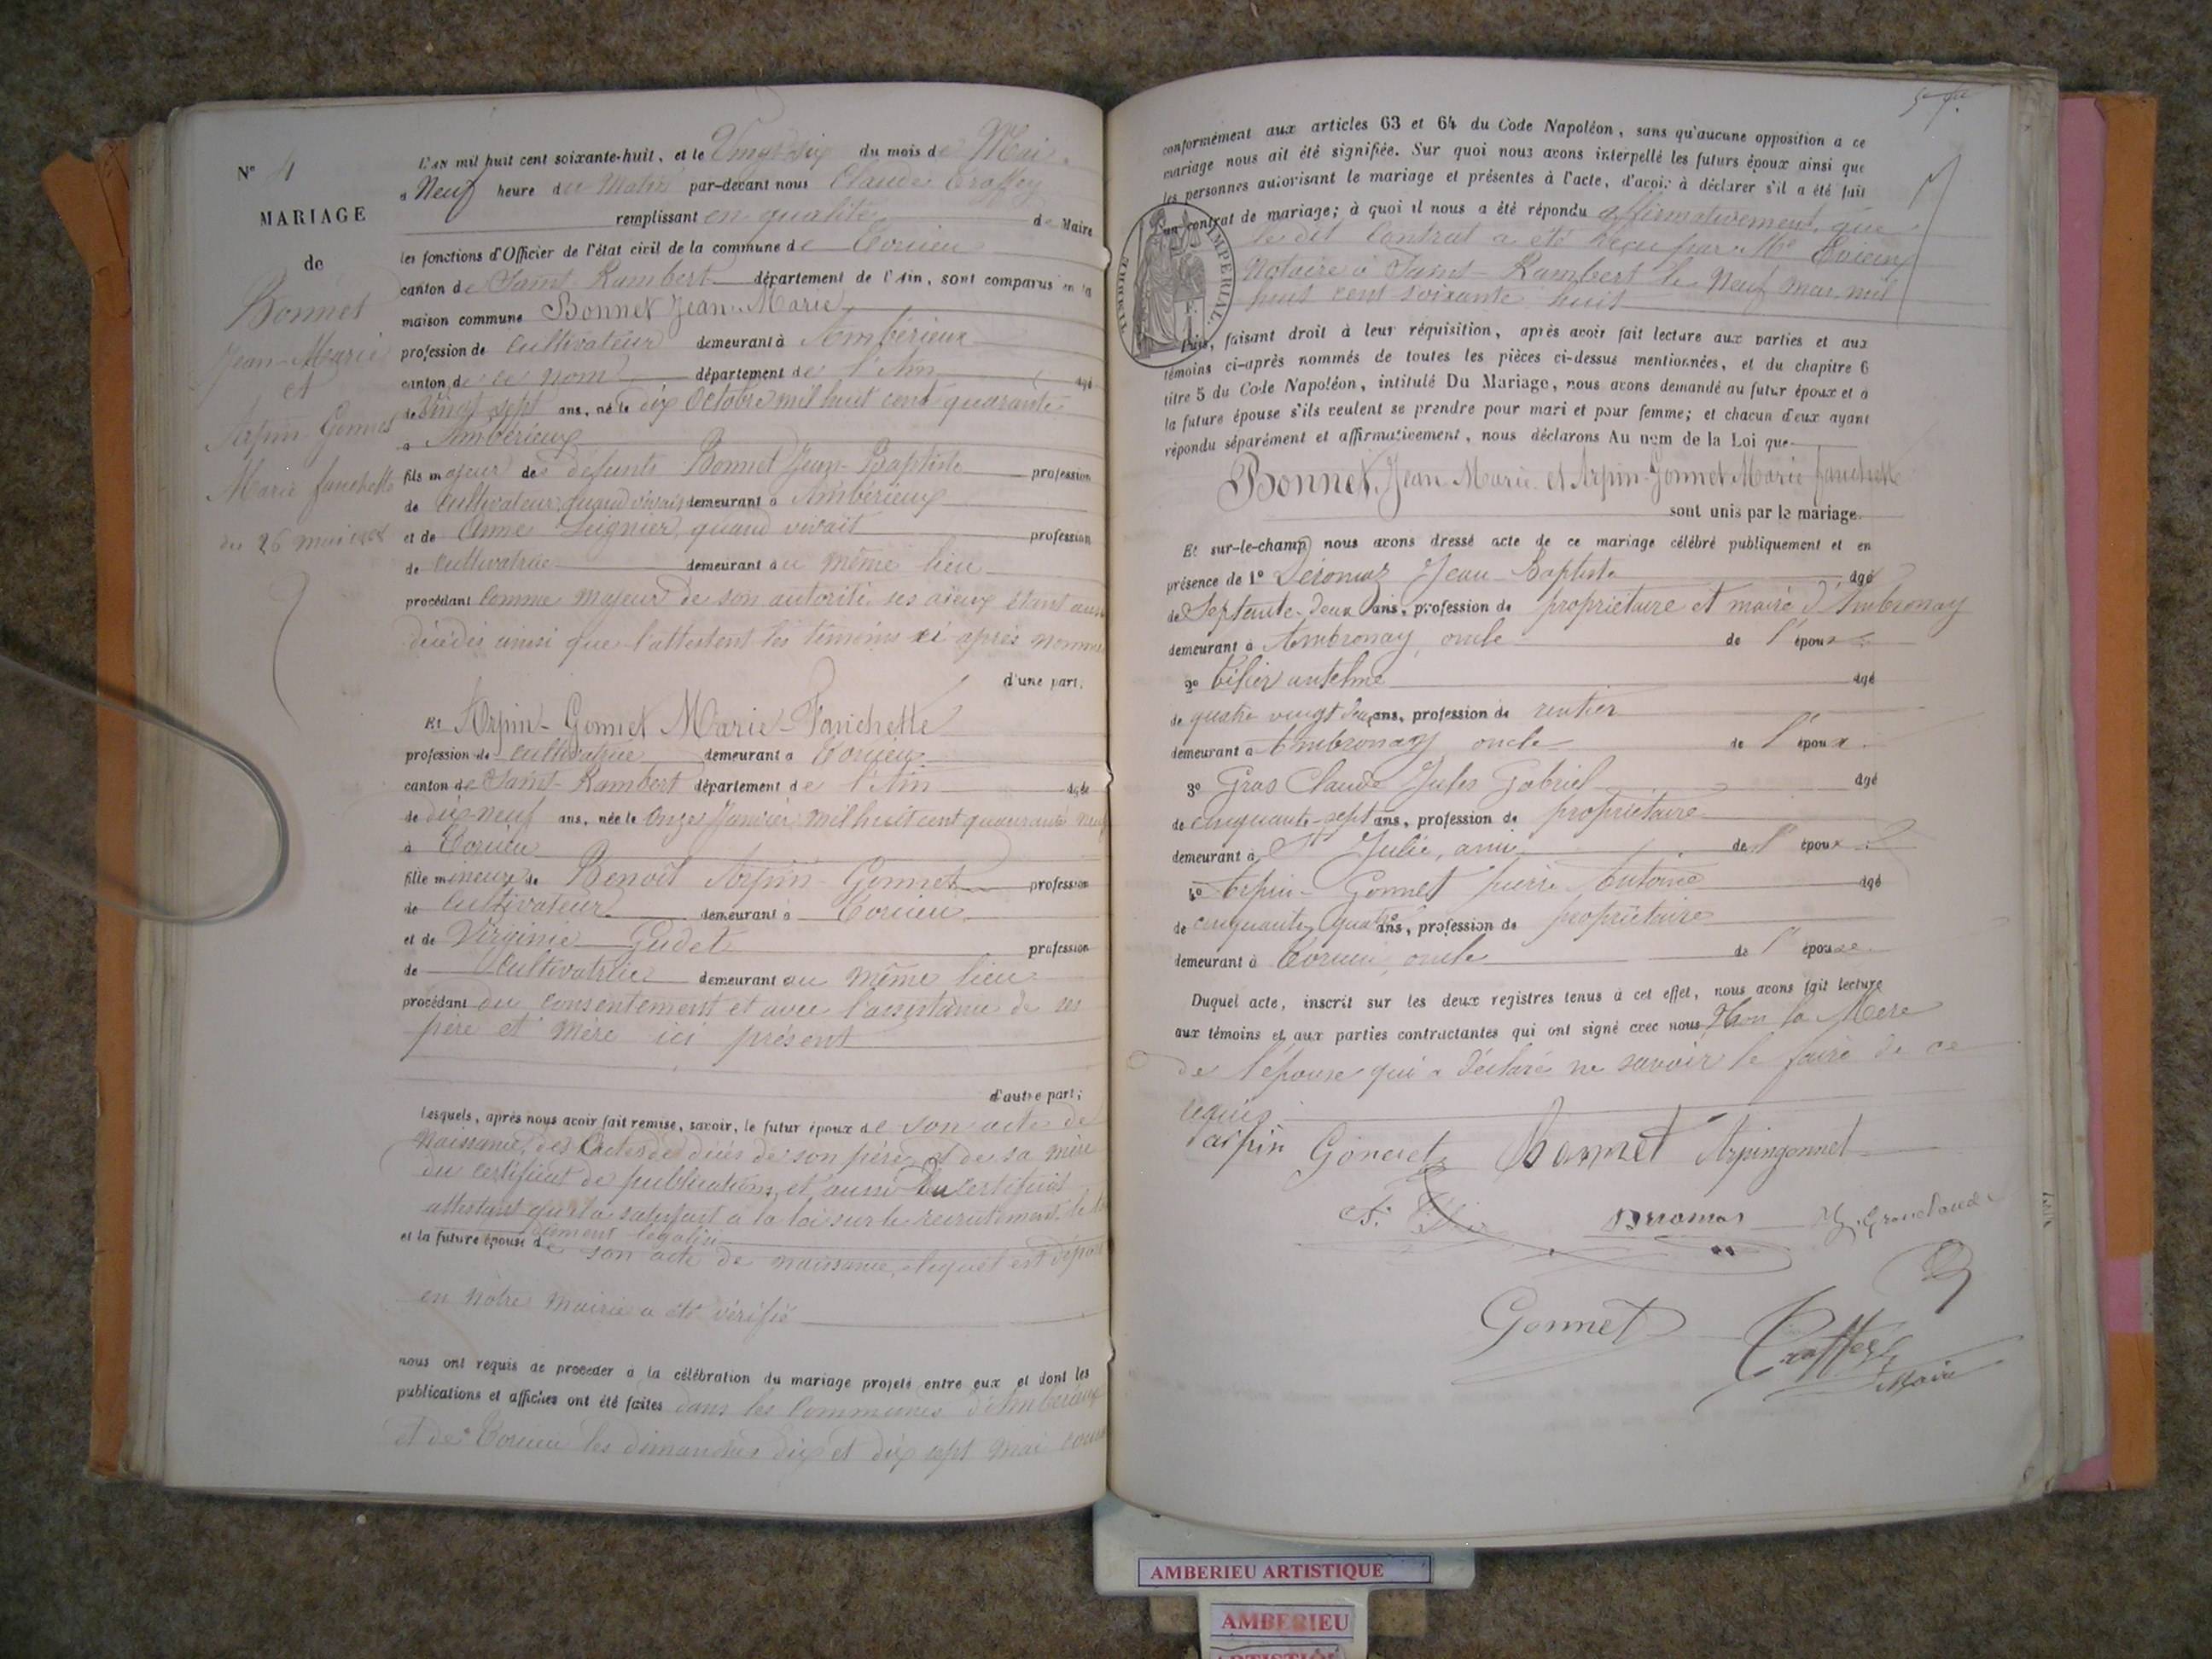 N° 4
MARIAGE
de
Bonnet
Jean-Marie
et
Arpin-Gonnet
Marie fanchette
du 26 mai 1868
L'AN mil huit cent soixante-huit, et le Vingt-six du mois de Mai
à Neuf heure du Matin par-devant nous Claude Traffey
remplissant en qualité de Maire
les fonctions d'Officier de l'état civil de la commune de Torcieu
canton de Saint-Rambert département de l'Ain, sont comparus en la
maison commune Bonnet Jean-Marie
profession de cultivateur demeurant à Ambérieux
canton de ce nom département de l'Ain âgé
de Vingt-sept ans, né le dix Octobre mil huit cent quarante
à Ambérieux
fils majeur de défunts Bonnet Jean-Baptiste profession
de Cultivateur quand vivait demeurant à Ambérieux
et de Anne Leignier, quand vivait profession
de cultivatrice demeurant au même lieu
procédant comme majeur de son autorité, ses aïeux étant aussi
décédés ainsi que l'attestent les témoins ci-après nommés
d'une part;
Et Arpin-Gonnet Marie-Fanchette
profession de cultivatrice demeurant à Torcieu
canton de Saint-Rambert département de l'Ain âgée
de dix-neuf ans, née le Onze Janvier mil huit cent quarante neuf
à Torcieu
fille mineure de Benoît Arpin-Gonnet profession
de Cultivateur demeurant à Torcieu
et de Virginie Gudet profession
de Cultivatrice demeurant au même lieu
procédant du consentement et avec l'assistance de ses
père et mère ici présent
d'autre part;
Lesquels, après nous avoir fait remise, savoir, le futur époux de son acte de
Naissance, des Actes de décès de son père et de sa mère
du certificat de publications, et aussi Du certificat
attestant qu'il a satisfait à la loi sur le recrutement, le tout
dûment légalisé
et la future épouse de son acte de naissance, lequel est déposé
en notre mairie a été vérifié
nous ont requis de procéder à la célébration du mariage projeté entre eux et dont les
publications et affiches ont été faites dans les Communes d'Ambérieux
et de Torcieu les dimanches dix et dix sept mai courant
conformément aux articles 63 et 64 du Code Napoléon, sans qu'aucune opposition à ce
mariage nous ait été signifiée. Sur quoi nous avons interpellé les futurs époux ainsi que
les personnes autorisant le mariage et présentes à l'acte, d'avoir à déclarer s'il a été fait
un contrat de mariage; à quoi il nous a été répondu affirmativement que
le dit Contrat a été reçu par Me
Notaire à Saint-Rambert le Neuf mai mil
huit cent soixante huit
TIMBRE IMPÉRIAL
Puis, faisant droit à leur réquisition, après avoir fait lecture aux parties et aux
témoins ci-après nommés de toutes les pièces ci-dessus mentionnées, et du chapitre 6
titre 5 du Code Napoléon, intitulé Du Mariage, nous avons demandé au futur époux et à
la future épouse s'ils veulent se prendre pour mari et pour femme; et chacun d'eux ayant
répondu séparément et affirmativement, nous déclarons Au nom de la Loi que
Bonnet, Jean Marie et Arpin-Gonnet Marie fanchette
sont unis par le mariage.
Et sur-le-champ nous avons dressé acte de ce mariage célébré publiquement et en
présence de 1° Déromaz Jean-Baptiste âgé
de Septante-deux ans, profession de propriétaire et maire d'Ambronay
demeurant à Ambronay, oncle de l'époux
2° Tilier anthelme âgé
de quatre vingt deux ans, profession de rentier
demeurant à Ambronay oncle de l'époux
3° Gras Claude Jules Gabriel âgé
de cinquante-sept ans, profession de propriétaire
demeurant à Ste Julie, ami de l'époux
4° Arpin-Gonnet pierre Antoine âgé
de cinquante quatre ans, profession de propriétaire
demeurant à Torcieu, oncle de l'épouse
Duquel acte, inscrit sur les deux registres tenus à cet effet, nous avons fait lecture
aux témoins et aux parties contractantes qui ont signé avec nous Non la Mère
de l'épouse qui a déclaré ne savoir le faire de ce
requis
arpin Gonnet Bonnet Arpingonnet
Deromas
Gonnet Traffey
Maire
AMBERIEU ARTISTIQUE
AMBERIEU
ARTISTIQUE